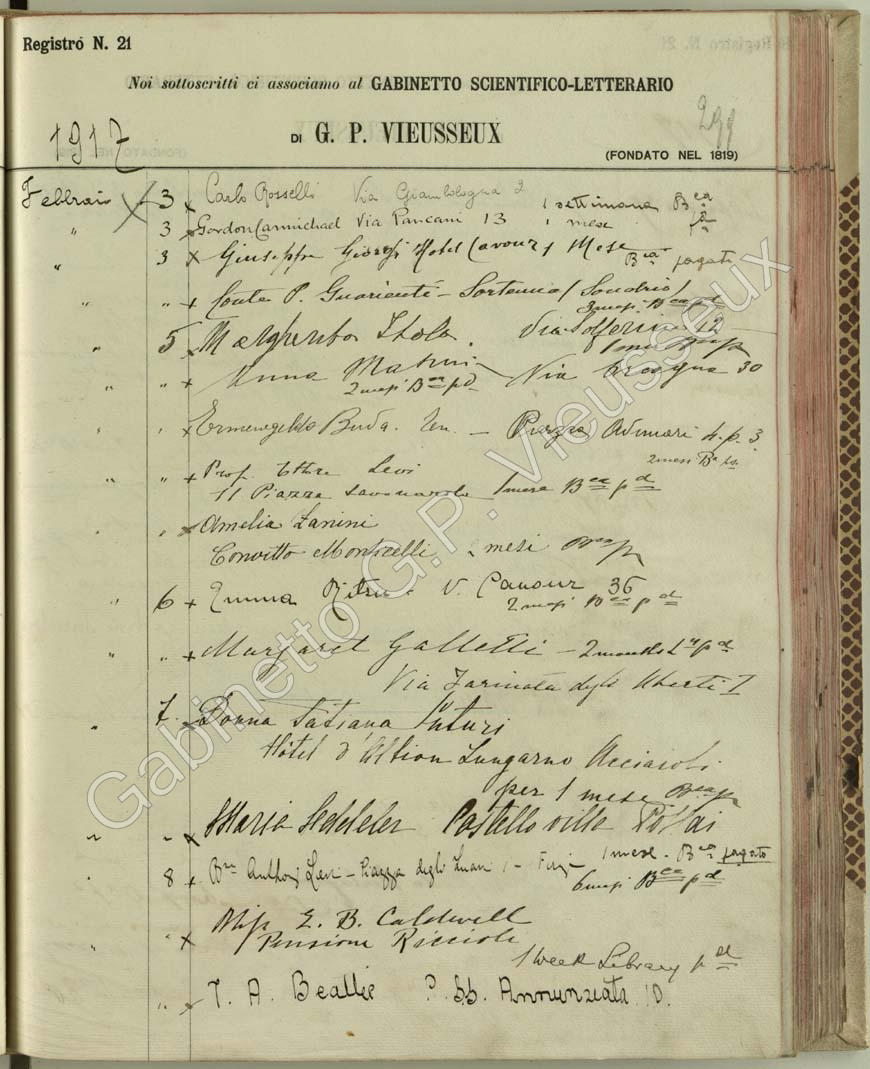 Registro N. 21
Noi sottoscritti ci associamo al GABINETTO SCIENTIFICO-LETTERARIO
299
1917
DI G. P. VIEUSSEUX
(FONDATO NEL 1819)
Febbraio 3 Carlo Rosselli Via Giambologna 2 1 settimana Bca
" 3 Gordon Carmichael Via Pancani 13 1 mese pa
" 3 Giuseppe Giorgi Hotel Cavour 1 Mese
Bca pagato
" " Conte P. Guarienti - (Sondrio)
3 mesi Bca pd
" 5 Margherita Via Solferino 12
1 mese Bca p
" " Anna Via 30
2 mesi Bca pd
" " Ermenegildo Buda. Ten. - Piazza Adimari 4. p. 3
2 mesi Ba pd
" " Prof. Ettore Levi
11 Piazza Savonarola 1 mese Bca pd
" " Amelia Zanini
Convitto Monticelli mesi Bca p
" 6 Emma V. Cavour 36
2 mesi Bca pd
" " Margaret Galletti - 2 months Ly pd
Via Farinata degli Uberti 1
" 7 Donna Tatiana
Hôtel d'Albion Lungarno Acciaioli
per 1 mese Bca p
" " Maria Castello villa
1 mese - Bca pagato
" 8 Anthony - Piazza degli
6 mesi Bca pd
" " Miss E. B. Caldwell
Pensione Riccioli
1 week Library pd
" " T. A. Beattie P. SS. Annunziata 10.
Gabinetto G.P. Vieusseux